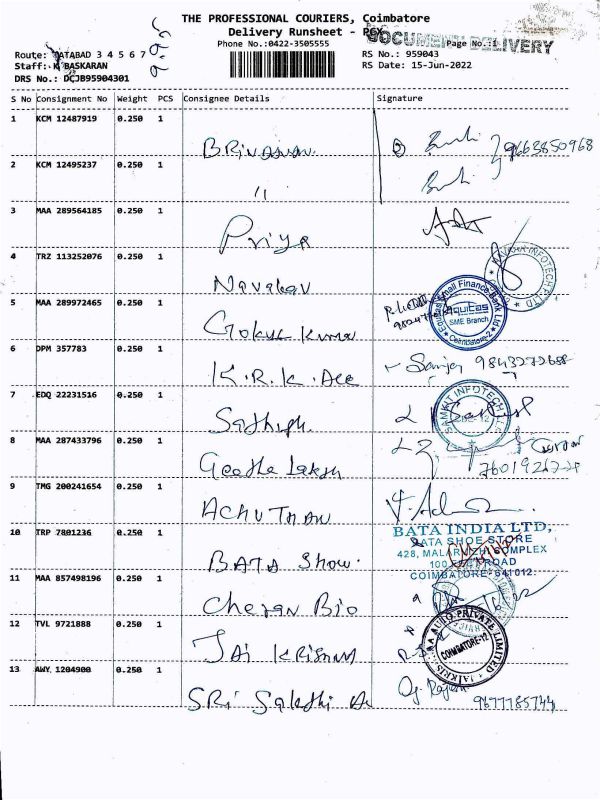 THE PROFESSIONAL COURIERS, Coimbatore
Delivery Runsheet -
DOCUMENT DELIVERY
Phone No.:0422-3505555
Page No.:1
Route: TATABAD 3 4 5 6 7
RS No.: 959043
Staff: K BASKARAN
RS Date: 15-Jun-2022
DRS No.: DCJB95904301
S No Consignment No Weight PCS Consignee Details Signature
1 KCM 12487919 0.250 1
9663850968
2 KCM 12495237 0.250 1 "
3 MAA 289564185 0.250 1 Priya
4 TRZ 113252076 0.250 1
5 MAA 289972465 0.250 1 Gokul Kumar
Equitas Small Finance Bank Ltd
equitas
SME Branch
Coimbatore-2
6 DPM 357783 0.250 1 K.R.K.
Sanjay 9843272688
7 EDQ 22231516 0.250 1 Sathish
SAMKIT INFOTECH
8 MAA 287433796 0.250 1 Geetha Laksh
9 TMG 200241654 0.250 1 ACHUTHAN
10 TRP 7801236 0.250 1 BATA Show.
BATA INDIA LTD,
BATA SHOE STORE
428, MALARVIZHI COMPLEX
100 FEET ROAD
COIMBATORE-641012.
11 MAA 857498196 0.250 1 Cheran Bio
12 TVL 9721888 0.250 1 JAI KRISHNAA
AUTO PRIVATE LIMITED
COIMBATORE-12
13 AWY 1204900 0.250 1 SRi Sakthi
9677185744